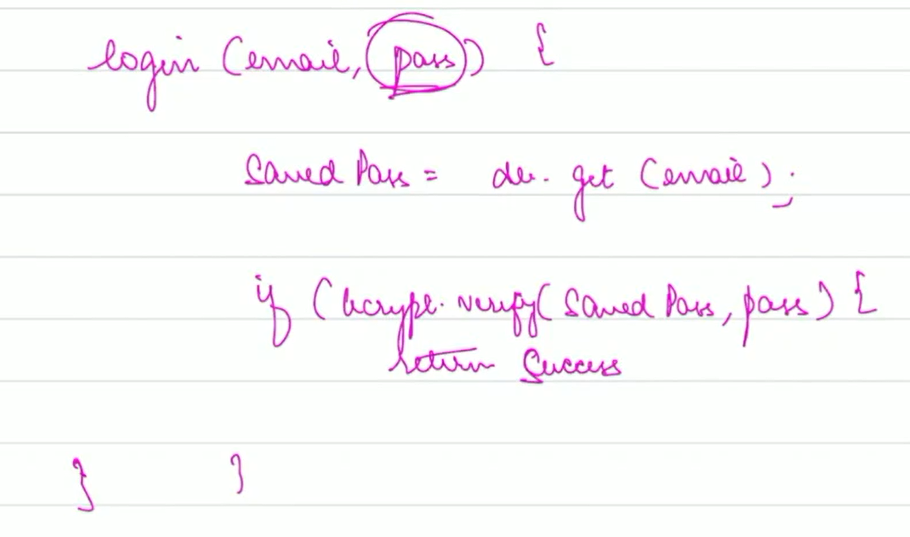 login (email, pass) {
saved Pass = db. get (email);
if (bcrypt. verify(saved Pass, pass) {
return Success
} }